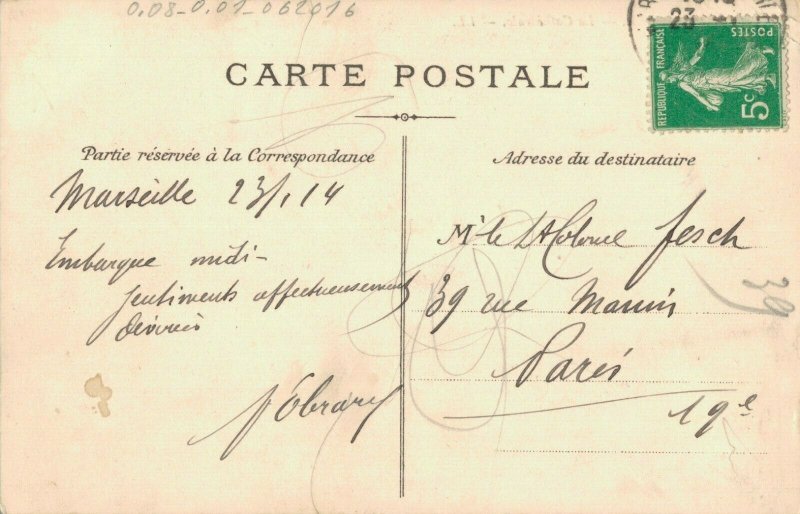 0.08-0.01-062016
23
CARTE POSTALE
REPUBLIQUE FRANÇAISE
POSTES
5c
Partie réservée à la Correspondance
Adresse du destinataire
Marseille 23/1 14
Embarque midi -
Sentiments affectueusement
dévoués
Mr le Lt Colonel Fesch
39 rue Manin
Paris
19e
39